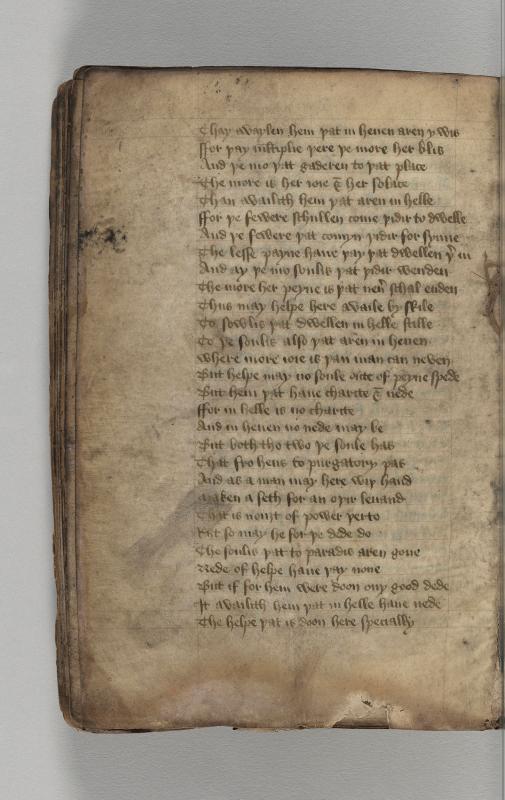 Thay awaylen hem þat in heuen aren ywis
ffor þay multiplie þere þe more her blis
And þe mo þat gaderen to þat place
The more is her ioie & her solace
Than availith hem þat aren in helle
ffor þe fewere schullen come þidir to dwelle
And þe fewere þat comyn þidir for synne
The lesse payne haue þay þat dwellen þer in
And ay þe mo soulis þat þidir wenden
The more her peyne is þat neuer schal enden
Thus may helpe here availe by skile
To sowlis þat dwellen in helle stille
To þe soulis also þat aren in heuen
where more ioie is þan man can neven
But helpe may no soule oute of peyne spede
But hem þat haue charite & nede
ffor in helle is no charite
And in heuen no nede may be
But both tho two þe soule has
That fro hens to purgatory pas
And as a man may here wiþ hand
Maken a seth for an oþir leuand
That is nouȝt of power þerto
Riȝt so may he for þe dede do
The soulis þat to paradis aren gone
Nede of helpe haue þay none
But if for hem were doon ony good dede
It availith hem þat in helle haue nede
The helpe þat is doon here specially